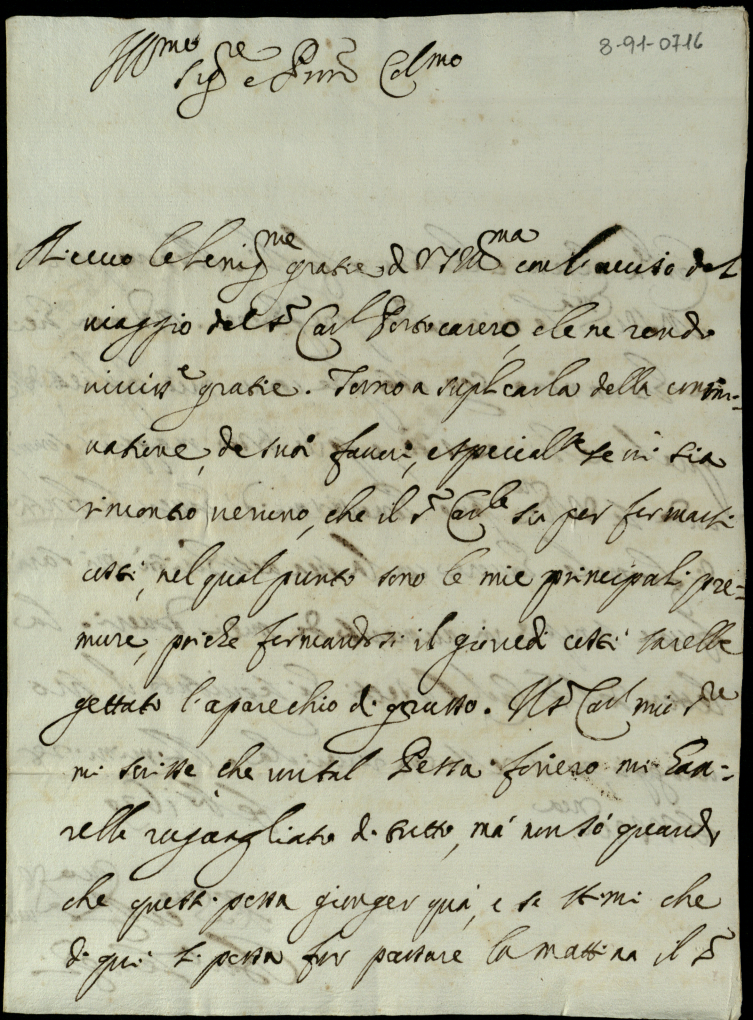 8-91-0716
Ill.mo
Sig.re e Pnn Col.mo
Riceuo le benig.me gratie di VSIll.ma con l'auiso del
uiaggio del S.r Car.l Portocarero, che ne rendo
uiuiss.e gratie. Torno a suplicarla della contin=
uatione, de suoi fauori, e special.te se ui sia
rincontro ueruno, che il S.r Car.le sia per fermarsi
costì, nel qual punto sono le mie principali pre=
mure, poiche fermandosi il giouedì costì sarebbe
gettato l'aparechio di grasso. Il S.r Car.l mio S.re
mi scrisse che un tal Pessa foriero mi hau=
rebbe raguagliato di tutto, mà non sò quando
che questi possa giunger quà, e se stimi che
di qui si possa far passare la mattina il S.r